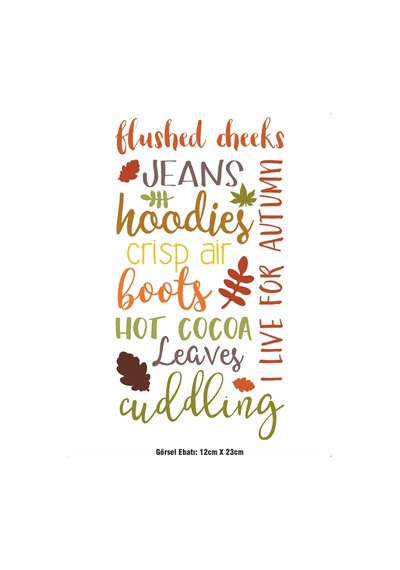 flushed cheeks
JEANS
hoodies
crisp air
boots
HOT COCOA
Leaves
cuddling
I LIVE FOR AUTUMN
Görsel Ebatı: 12cm X 23cm